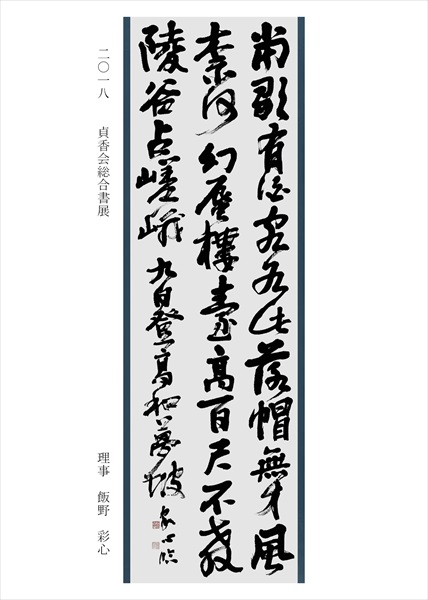 有酒落帽無才風
奈何幻蜃樓臺高百尺不教
陵谷占嵯峨 九日登高和夢坡 彩心臨
二〇一八 貞香会総合書展
理事 飯野 彩心